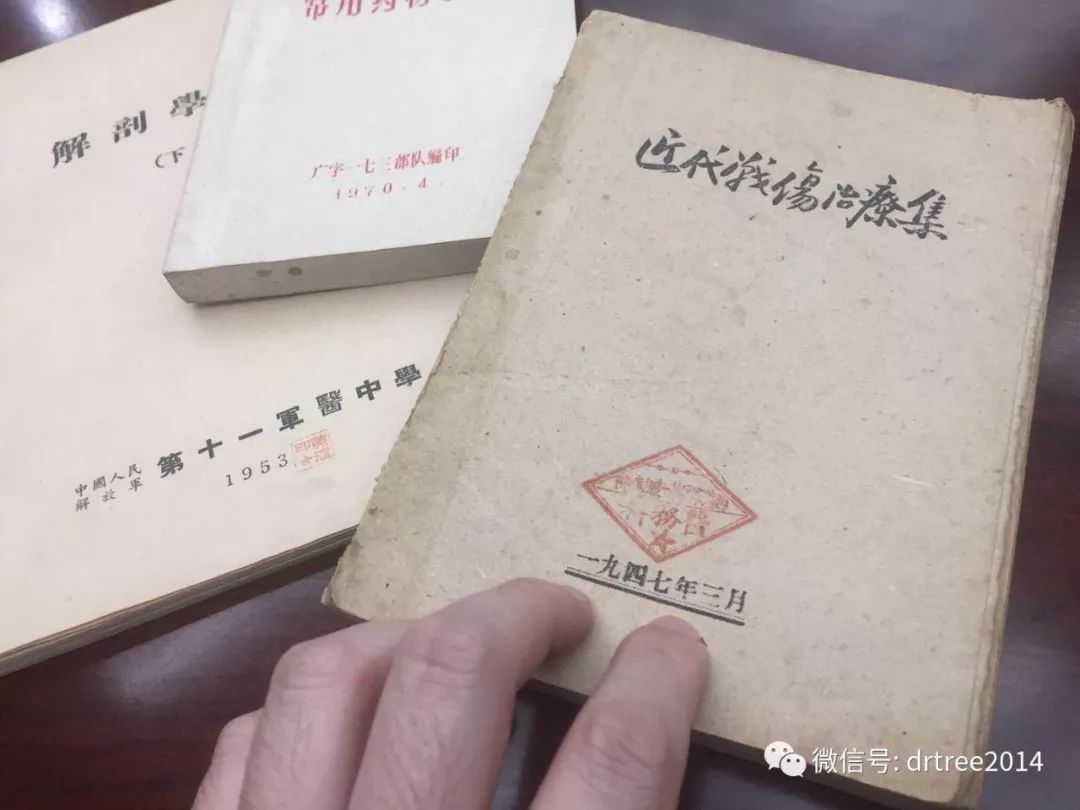 解剖學
(下
常用药物
广字一七三部队编印
1970.4.
中國人民
解放軍
第十一軍醫中學
1953
近代戰傷治療集
一九四七年三月
微信号: drtree2014